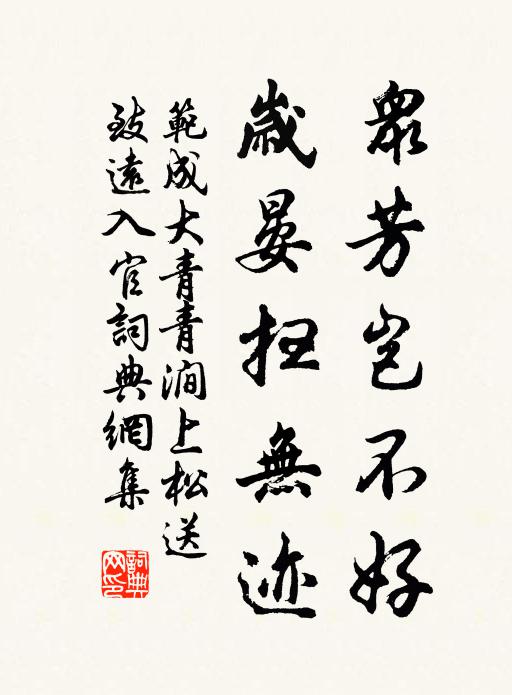 眾芳豈不好
歲晏掃無迹
範成大青青澗上松送
致遠入官詞典網集
詞典網印